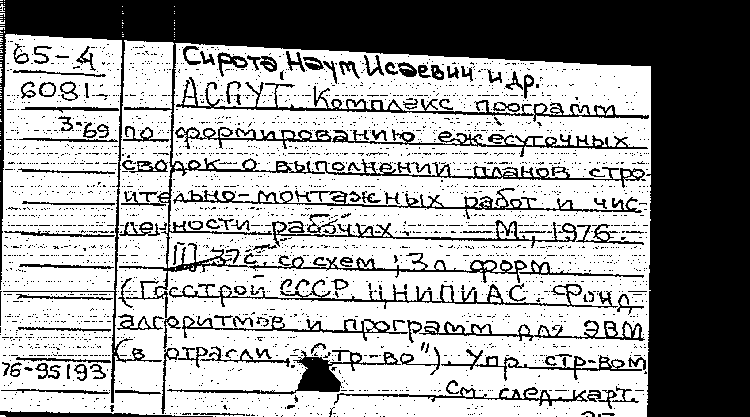 65-4
6081-
3-69
Сирота, Наум Исаевич и др.
АСПУТ. Комплекс программ
по формированию ежесуточных
сводок о выполнении планов стро-
ительно-монтажных работ и чис-
ленности рабочих. М., 1976.
37с. со схем.; 3 л. форм.
(Госстрой СССР. ЦНИПИАС. Фонд
алгоритмов и программ для ЭВМ
(в отрасли „Стр-во"). Упр. стр-вом
76-95193
См. след. карт.